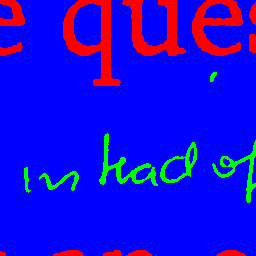 e ques
instead of